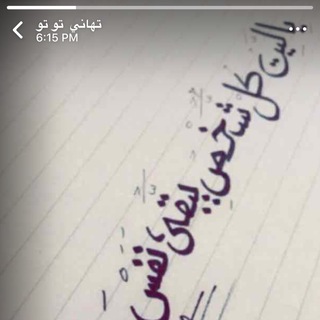 تهاني تو تو
6:15 PM
ياليت كل شخص يبقى نفس